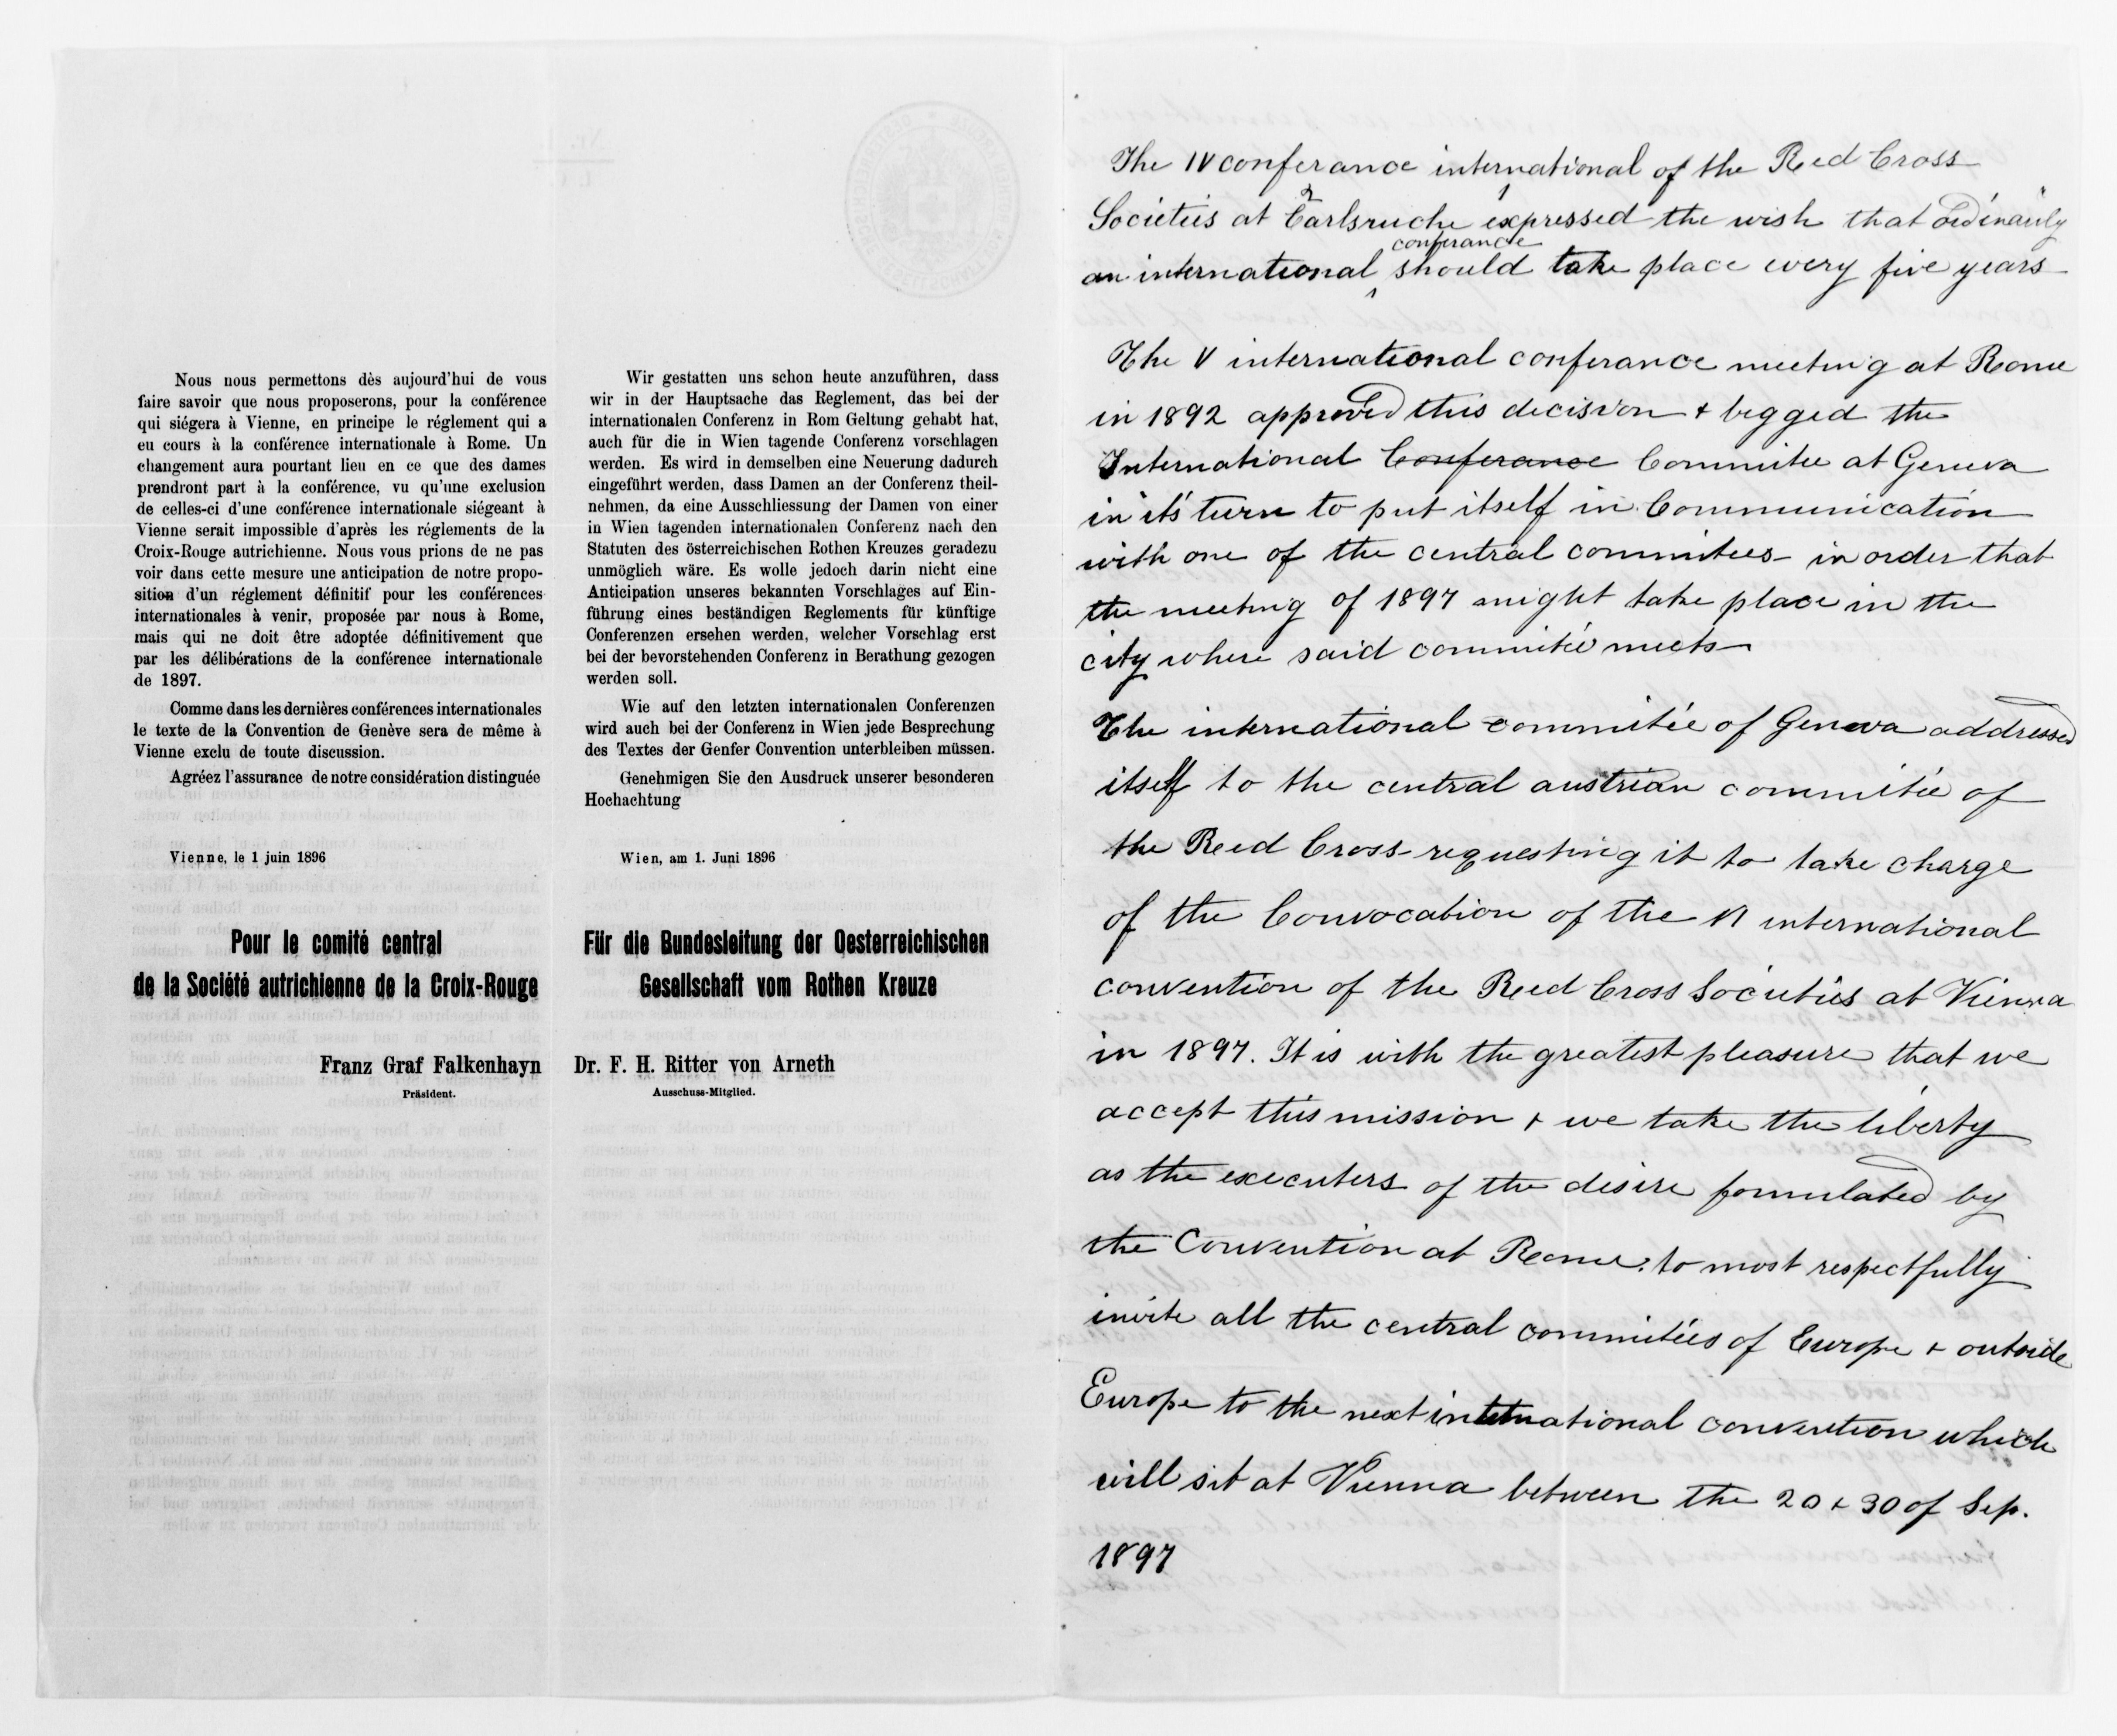 Nous nous permettons dès aujourd'hui de vous
faire savoir que nous proposerons, pour la conférence
qui siégera à Vienne, en principe le réglement qui a
eu cours à la conférence internationale à Rome. Un
changement aura pourtant lieu en ce que des dames
prendront part à la conférence, vu qu'une exclusion
de celles-ci d'une conférence internationale siégeant à
Vienne serait impossible d'après les réglements de la
Croix-Rouge autrichienne. Nous vous prions de ne pas
voir dans cette mesure une anticipation de notre propo-
sition d'un réglement définitif pour les conférences
internationales à venir, proposée par nous à Rome,
mais qui ne doit être adoptée définitivement que
par les délibérations de la conférence internationale
de 1897.
Comme dans les dernières conférences internationales
le texte de la Convention de Genève sera de même à
Vienne exclu de toute discussion.
Agréez l'assurance de notre considération distinguée
Vienne, le 1 juin 1896
Pour le comité central
de la Société autrichienne de la Croix-Rouge
Franz Graf Falkenhayn
Präsident.
Wir gestatten uns schon heute anzuführen, dass
wir in der Hauptsache das Reglement, das bei der
internationalen Conferenz in Rom Geltung gehabt hat,
auch für die in Wien tagende Conferenz vorschlagen
werden. Es wird in demselben eine Neuerung dadurch
eingeführt werden, dass Damen an der Conferenz theil-
nehmen, da eine Ausschliessung der Damen von einer
in Wien tagenden internationalen Conferenz nach den
Statuten des österreichischen Rothen Kreuzes geradezu
unmöglich wäre. Es wolle jedoch darin nicht eine
Anticipation unseres bekannten Vorschlages auf Ein-
führung eines beständigen Reglements für künftige
Conferenzen ersehen werden, welcher Vorschlag erst
bei der bevorstehenden Conferenz in Berathung gezogen
werden soll.
Wie auf den letzten internationalen Conferenzen
wird auch bei der Conferenz in Wien jede Besprechung
des Textes der Genfer Convention unterbleiben müssen.
Genehmigen Sie den Ausdruck unserer besonderen
Hochachtung
Wien, am 1. Juni 1896
Für die Bundesleitung der Oesterreichischen
Gesellschaft vom Rothen Kreuze
Dr. F. H. Ritter von Arneth
Ausschuss-Mitglied.
The IV conferance international of the Red Cross
Societies at Carlsruche expressed the wish that ordinarily
an international conferance should take place every five years
The V international conferance meeting at Rome
in 1892 approved this decision + begged the
International Conferance Commitee at Geneva
in it's turn to put itself in Communication
with one of the central commitees in order that
the meeting of 1897 might take place in the
city where said commitée meets
The international commitée of Geneva addressed
itself to the central austrian commitée of
the Red Cross requesting it to take charge
of the Convocation of the VI international
convention of the Red Cross Societies at Vienna
in 1897. It is with the greatest pleasure that we
accept this mission + we take the liberty
as the executers of the desire formulated by
the Convention at Rome, to most respectfully
invite all the central commitées of Europe + outside
Europe to the next international convention which
will sit at Vienna between the 20 + 30 of Sep.
1897